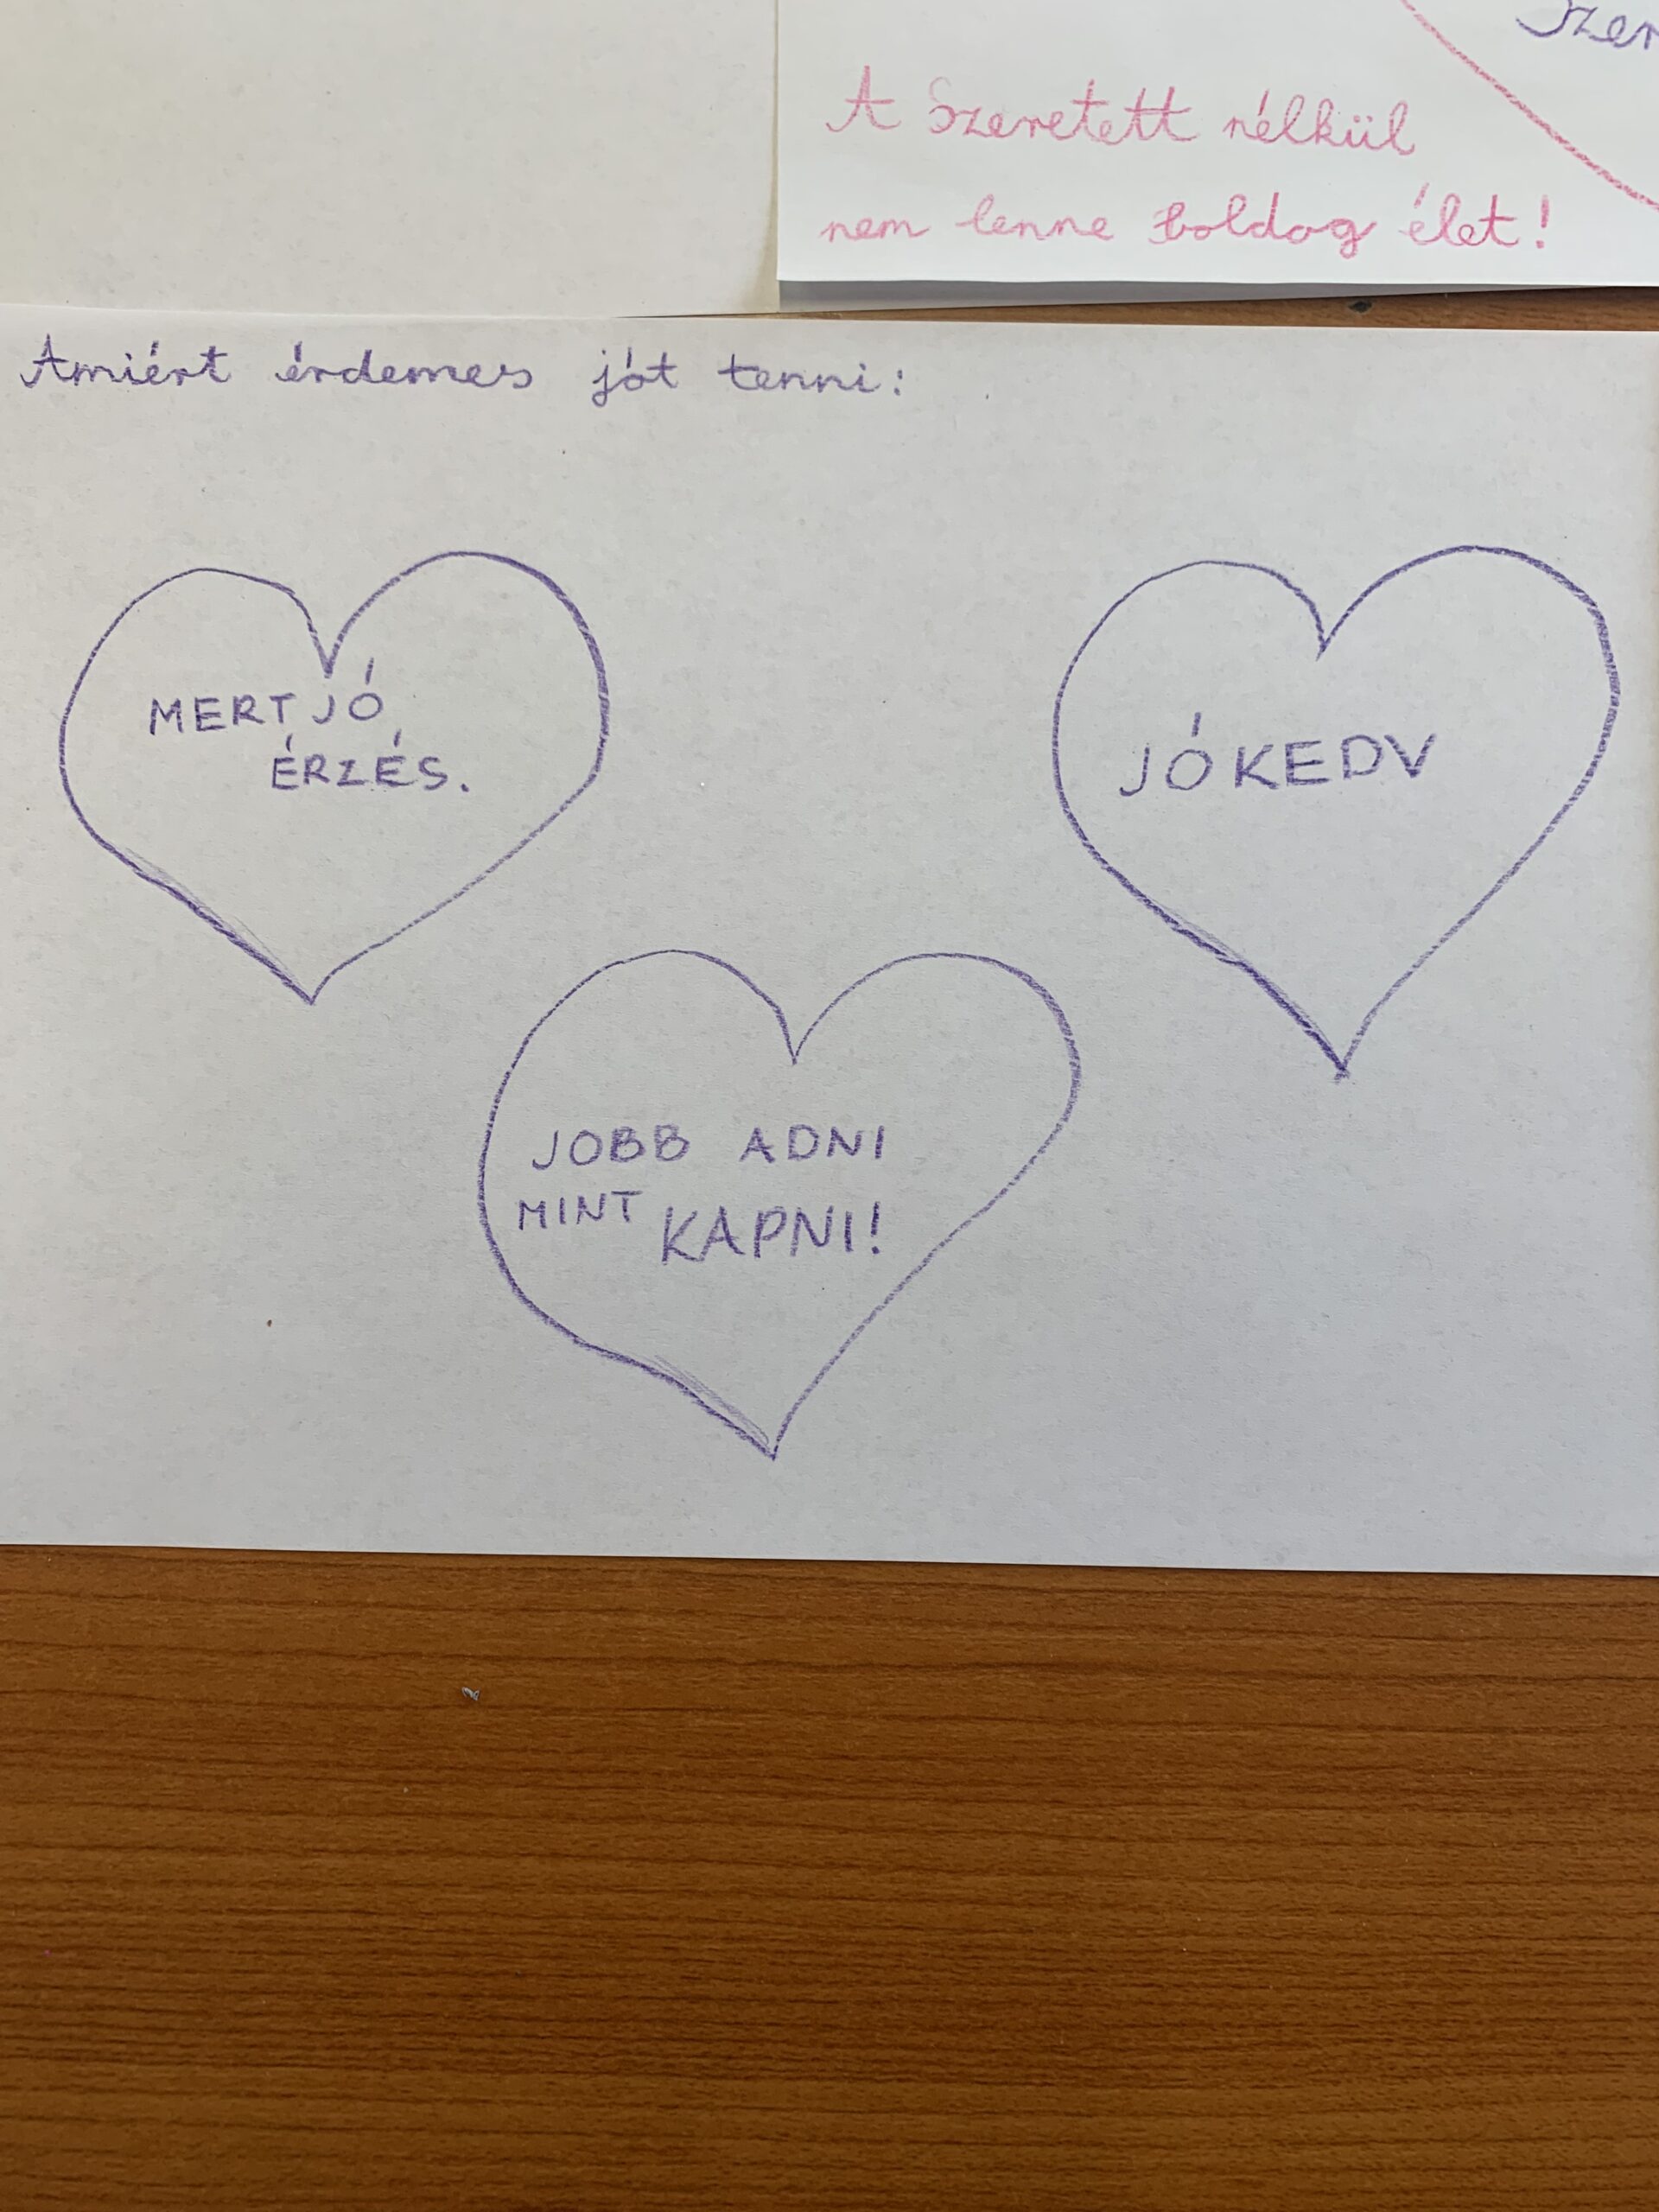 A Szeretett nélkül
nem lenne boldog élet!
Amiért érdemes jót tenni:
MERT JÓ
ÉRZÉS.
JÓKEDV
JOBB ADNI
MINT KAPNI!